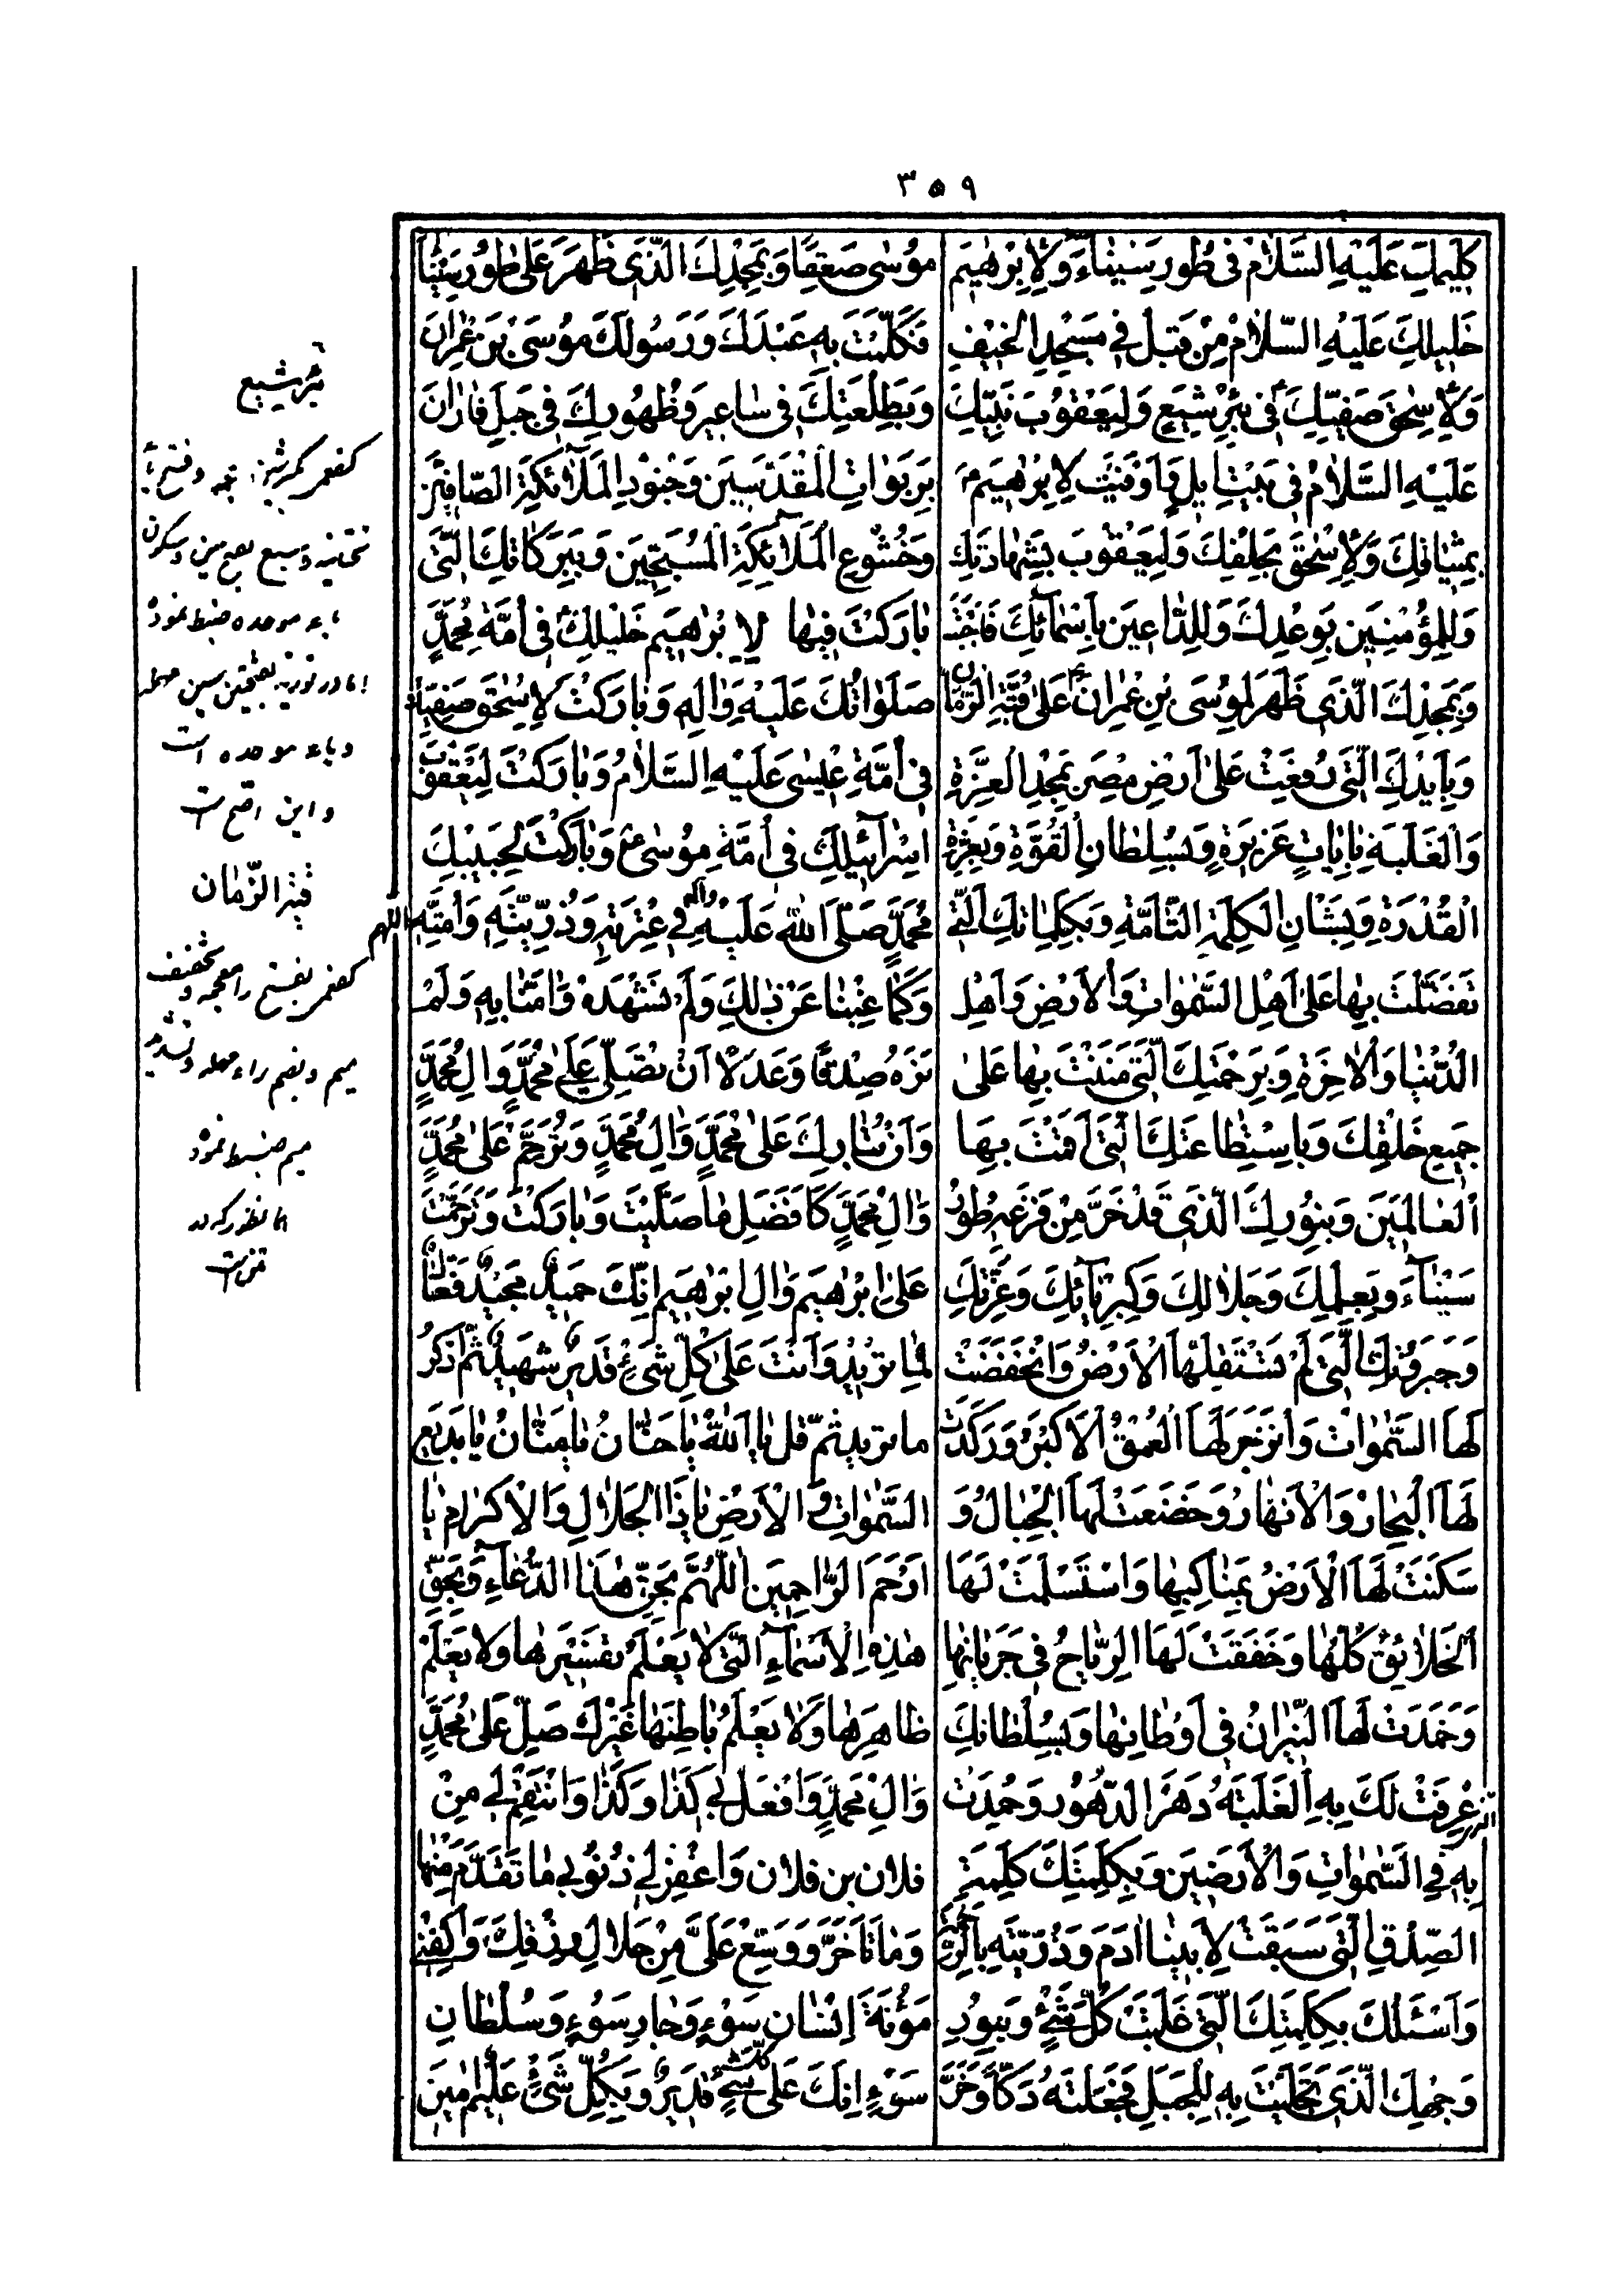 ٣٥٩
كَلِيمِكَ عَلَيْهِ السَّلَامُ فِى طُورِ سَيْنَاءَ وَلِإِبْرٰهِيمَ
خَلِيلِكَ عَلَيْهِ السَّلَامُ مِنْ قَبْلُ فِى مَسْجِدِ الْخَيْفِ
وَلِإِسْحٰقَ صَفِيِّكَ ع فِى بِئْرِ شِيَعٍ وَلِيَعْقُوبَ نَبِيِّكَ
عَلَيْهِ السَّلَامُ فِى بَيْتِ إِيلٍ وَأَوْفَيْتَ لِإِبْرٰهِيمَ ع
بِمِيثَاقِكَ وَلِإِسْحٰقَ بِحَلِفِكَ وَلِيَعْقُوبَ بِشَهَادَتِكَ
وَلِلْمُؤْمِنِينَ بِوَعْدِكَ وَلِلدَّاعِينَ بِأَسْمَائِكَ فَأَجَبْتَ
وَبِمَجْدِكَ الَّذِى ظَهَرَ لِمُوسَى بْنِ عِمْرَانَ ع عَلَى قُبَّةِ الرُّمَّانِ
وَبِأَيْدِكَ الَّتِى رُفِعَتْ عَلَى أَرْضِ مِصْرَ بِمَجْدِ الْعِزَّةِ
وَالْغَلَبَةِ بِآيَاتٍ عَزِيزَةٍ وَبِسُلْطَانِ الْقُوَّةِ وَبِعِزَّةِ
الْقُدْرَةِ وَبِشَأْنِ الْكَلِمَةِ التَّامَّةِ وَبِكَلِمَاتِكَ الَّتِى
تَفَضَّلْتَ بِهَا عَلَى أَهْلِ السَّمٰوَاتِ وَالْأَرْضِ وَأَهْلِ
الدُّنْيَا وَالْآخِرَةِ وَبِرَحْمَتِكَ الَّتِى مَنَنْتَ بِهَا عَلَى
جَمِيعِ خَلْقِكَ وَبِاسْتِطَاعَتِكَ الَّتِى أَقَمْتَ بِهَا
الْعَالَمِينَ وَبِنُورِكَ الَّذِى قَدْ خَرَّ مِنْ فَزَعِهِ طُورُ
سَيْنَاءَ وَبِعِلْمِكَ وَجَلَالِكَ وَكِبْرِيَائِكَ وَعِزَّتِكَ
وَجَبَرُوتِكَ الَّتِى لَمْ تَسْتَقِلَّهَا الْأَرْضُ وَانْخَفَضَتْ
لَهَا السَّمٰوَاتُ وَانْزَجَرَ لَهَا الْعُمْقُ الْأَكْبَرُ وَرَكَدَتْ
لَهَا الْبِحَارُ وَالْأَنْهَارُ وَخَضَعَتْ لَهَا الْجِبَالُ وَ
سَكَنَتْ لَهَا الْأَرْضُ بِمَنَاكِبِهَا وَاسْتَسْلَمَتْ لَهَا
الْخَلَائِقُ كُلُّهَا وَخَفَقَتْ لَهَا الرِّيَاحُ فِى جَرَيَانِهَا
وَخَمَدَتْ لَهَا النِّيرَانُ فِى أَوْطَانِهَا وَبِسُلْطَانِكَ
الَّذِى عُرِفَتْ لَكَ بِهِ الْغَلَبَةُ دَهْرَ الدُّهُورِ وَحُمِدْتَ
بِهِ فِى السَّمٰوَاتِ وَالْأَرَضِينَ وَبِكَلِمَتِكَ كَلِمَةِ
الصِّدْقِ الَّتِى سَبَقَتْ لِأَبِينَا اٰدَمَ وَذُرِّيَّتِهِ بِالرَّحْمَةِ
وَأَسْئَلُكَ بِكَلِمَتِكَ الَّتِى غَلَبَتْ كُلَّ شَىْءٍ وَبِنُورِ
وَجْهِكَ الَّذِى تَجَلَّيْتَ بِهِ لِلْجَبَلِ فَجَعَلْتَهُ دَكًّا وَخَرَّ
مُوسٰى صَعِقًا وَبِمَجْدِكَ الَّذِى ظَهَرَ عَلَى طُورِ سَيْنَاءَ
فَكَلَّمْتَ بِهِ عَبْدَكَ وَرَسُولَكَ مُوسَى بْنَ عِمْرَانَ
وَبِطَلْعَتِكَ فِى سَاعِيرَ وَظُهُورِكَ فِى جَبَلِ فَارَانَ
بِرَبَوَاتِ الْمُقَدَّسِينَ وَجُنُودِ الْمَلَائِكَةِ الصَّافِّينَ
وَخُشُوعِ الْمَلَائِكَةِ الْمُسَبِّحِينَ وَبِبَرَكَاتِكَ الَّتِى
بَارَكْتَ فِيهَا لِإِبْرٰهِيمَ خَلِيلِكَ ع فِى أُمَّةِ مُحَمَّدٍ
صَلَوَاتُكَ عَلَيْهِ وَاٰلِهِ وَبَارَكْتَ لِإِسْحٰقَ صَفِيِّكَ
فِى أُمَّةِ عِيسٰى عَلَيْهِ السَّلَامُ وَبَارَكْتَ لِيَعْقُوبَ
إِسْرَائِيلِكَ فِى أُمَّةِ مُوسٰى ع وَبَارَكْتَ لِحَبِيبِكَ
مُحَمَّدٍ صَلَّى اللهُ عَلَيْهِ وآله فِى عِتْرَتِهِ وَذُرِّيَّتِهِ وَأُمَّتِهِ اللّهم
وَكَمَا غِبْنَا عَنْ ذٰلِكَ وَلَمْ نَشْهَدْهُ وَاٰمَنَّا بِهِ وَلَمْ
نَرَهُ صِدْقًا وَعَدْلًا أَنْ تُصَلِّىَ عَلَى مُحَمَّدٍ وَاٰلِ مُحَمَّدٍ
وَأَنْ تُبَارِكَ عَلَى مُحَمَّدٍ وَاٰلِ مُحَمَّدٍ وَتَرَحَّمَ عَلَى مُحَمَّدٍ
وَاٰلِ مُحَمَّدٍ كَأَفْضَلِ مَا صَلَّيْتَ وَبَارَكْتَ وَتَرَحَّمْتَ
عَلَى إِبْرٰهِيمَ وَاٰلِ إِبْرٰهِيمَ إِنَّكَ حَمِيدٌ مَجِيدٌ فَعَّالٌ
لِمَا تُرِيدُ وَأَنْتَ عَلَى كُلِّ شَىْءٍ قَدِيرٌ شَهِيدٌ ثُمَّ اذْكُرْ
ما تريد ثمّ قل يَا اَللهُ يَا حَنَّانُ يَا مَنَّانُ يَا بَدِيعَ
السَّمٰوَاتِ وَالْأَرْضِ يَا ذَا الْجَلَالِ وَالْإِكْرَامِ يَا
أَرْحَمَ الرَّاحِمِينَ اَللّٰهُمَّ بِحَقِّ هٰذَا الدُّعَاءِ وَبِحَقِّ
هٰذِهِ الْأَسْمَاءِ الَّتِى لَا يَعْلَمُ تَفْسِيرَهَا وَلَا يَعْلَمُ
ظَاهِرَهَا وَلَا يَعْلَمُ بَاطِنَهَا غَيْرُكَ صَلِّ عَلَى مُحَمَّدٍ
وَاٰلِ مُحَمَّدٍ وَافْعَلْ بِى كَذَا وَكَذَا وَانْتَقِمْ لِى مِنْ
فلان بن فلان وَاغْفِرْ لِى ذُنُوبِى مَا تَقَدَّمَ مِنْهَا
وَمَا تَأَخَّرَ وَوَسِّعْ عَلَىَّ مِنْ حَلَالِ رِزْقِكَ وَاكْفِنِى
مَؤُنَةَ إِنْسَانِ سَوْءٍ وَجَارِ سَوْءٍ وَسُلْطَانِ
سَوْءٍ إِنَّكَ عَلَى كلّ شىء قَدِيرٌ وَبِكُلِّ شَىْءٍ عَلِيمٌ اٰمِينَ
بئر شيع
كفعمى بكسر شين معجمه و فتح ياء
تحتانيه و سبع بفتح سين و سكون
باء موحده ضبط نموده
اما در توريه بفتحتين سين مهمله
و باء موحده است
و اين اصح است
قبّة الزّمان
كفعمى بفتح زا معجمه و تخفيف
ميم و بضم راء مهمله و تشديد
ميم ضبط نموده